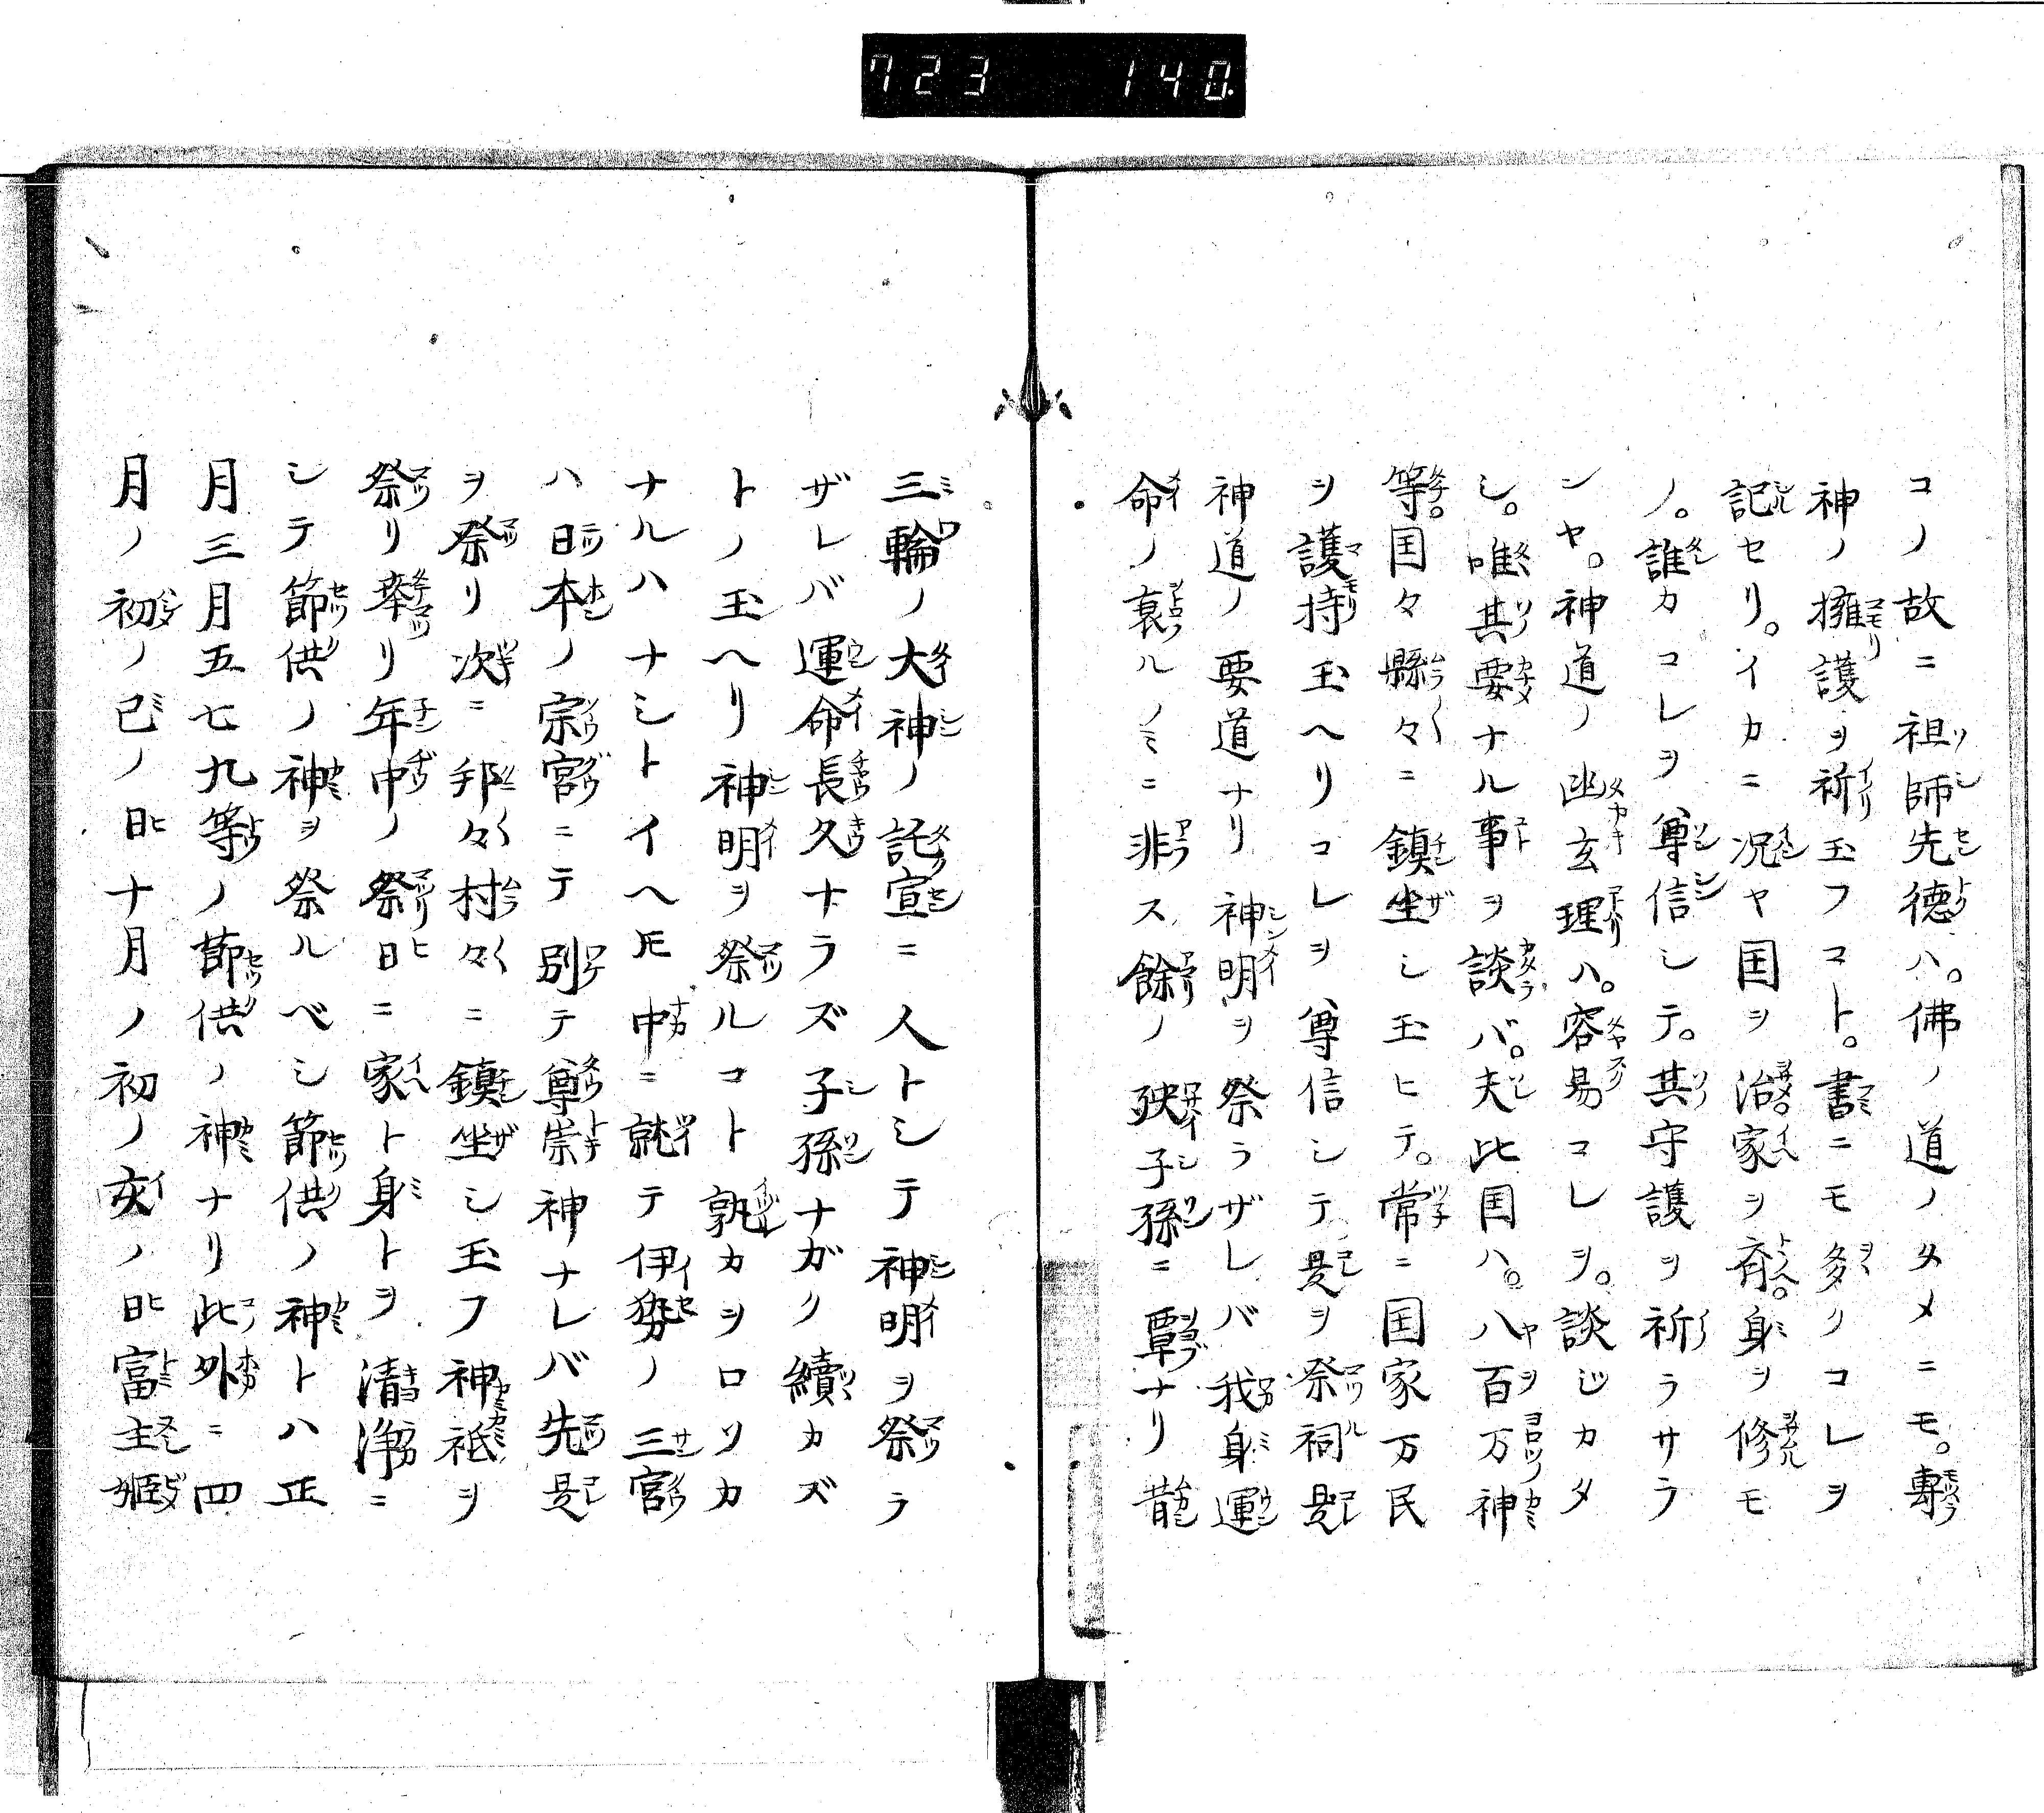 723 140
コノ故ニ祖師先德ハ。佛ノ道ノタメニモ。專
神ノ擁護ヲ祈玉フコト。書ニモ多クコレヲ
記セリ。イカニ况ヤ国ヲ治。家ヲ斉。身ヲ修モ
ノ。誰カコレヲ尊信シテ。其守護ヲ祈ラサラ
ンヤ。神道ノ幽玄理ハ。容易コレヲ。談ジカタ
シ。唯其要ナル事ヲ談バ。夫此国ハ。八百万神
等。国々縣々ニ鎮坐シ玉ヒテ。常ニ国家万民
ヲ護持玉ヘリコレヲ尊信シテ是ヲ祭祠是
神道ノ要道ナリ神明ヲ祭ラザレバ我身運
命ノ衰ルノミニ非ス餘ノ殃子孫ニ覃ナリ昔
三輪ノ大神ノ託宣ニ人トシテ神明ヲ祭ラ
ザレバ運命長久ナラズ子孫ナガク續カズ
トノ玉ヘリ神明ヲ祭ルコト孰カヲロソカ
ナルハナシトイヘ𪜈中ニ就テ伊勢ノ三宮
ハ日本ノ宗宮ニテ別テ尊崇神ナレバ先是
ヲ祭リ次ニ邦々村々ニ鎮坐シ玉フ神祇ヲ
祭リ奉リ年中ノ祭日ニ家ト身トヲ清浄ニ
シテ節供ノ神ヲ祭ルベシ節供ノ神トハ正
月三月五七九等ノ節供ノ神ナリ此外ニ四
月ノ初ノ巳ノ日十月ノ初ノ亥ノ日富主姫